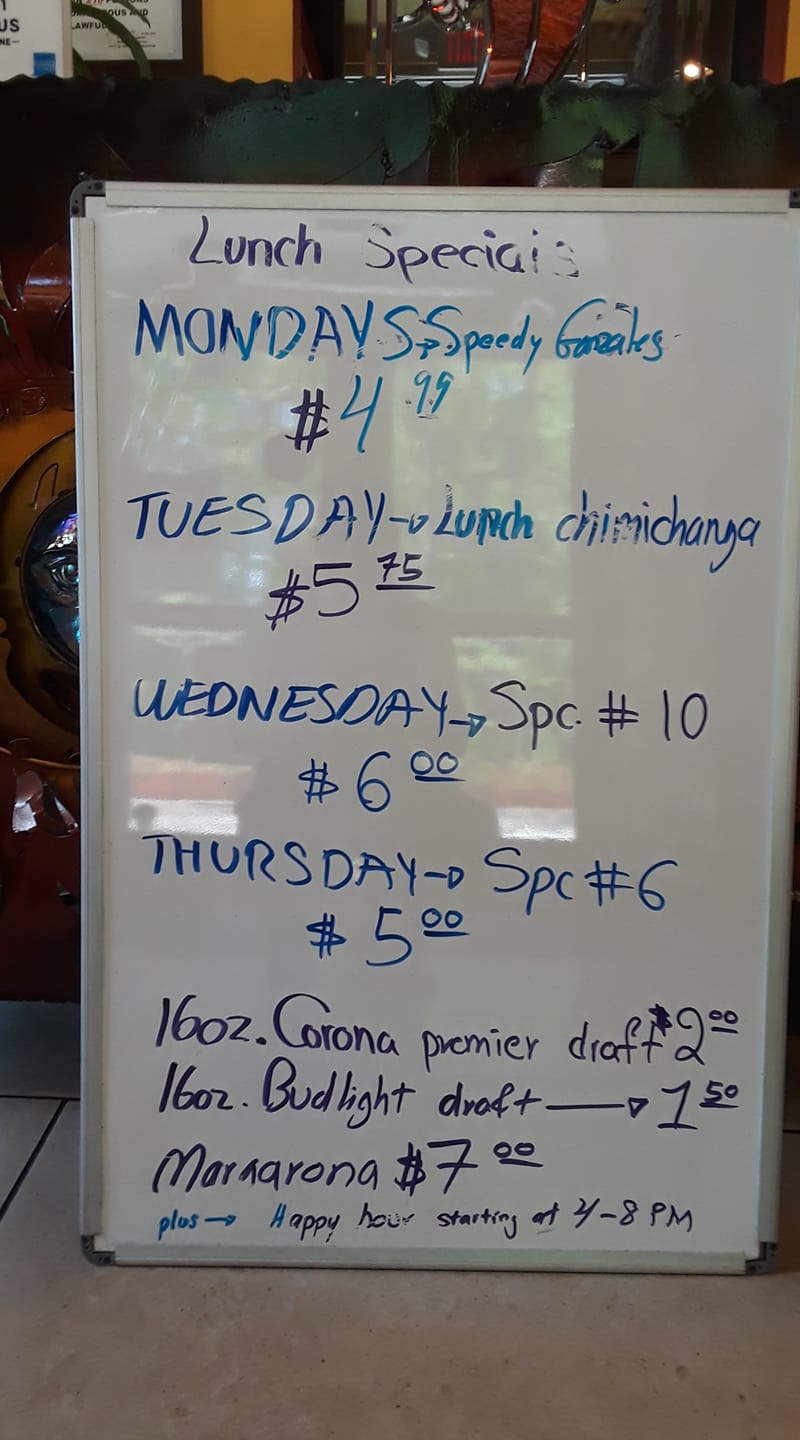 US
NE—
LAWFUL
Lunch Specials
MONDAYS→Speedy Gonzales
$4 99
TUESDAY→Lunch chimichanga
$5 75
WEDNESDAY→Spc. # 10
$ 6 00
THURSDAY→ Spc #6
$ 5 00
16oz. Corona premier draft $2 00
16oz. Budlight draft → 1 50
Margarona $7 00
plus→ Happy hour starting at 4-8 PM